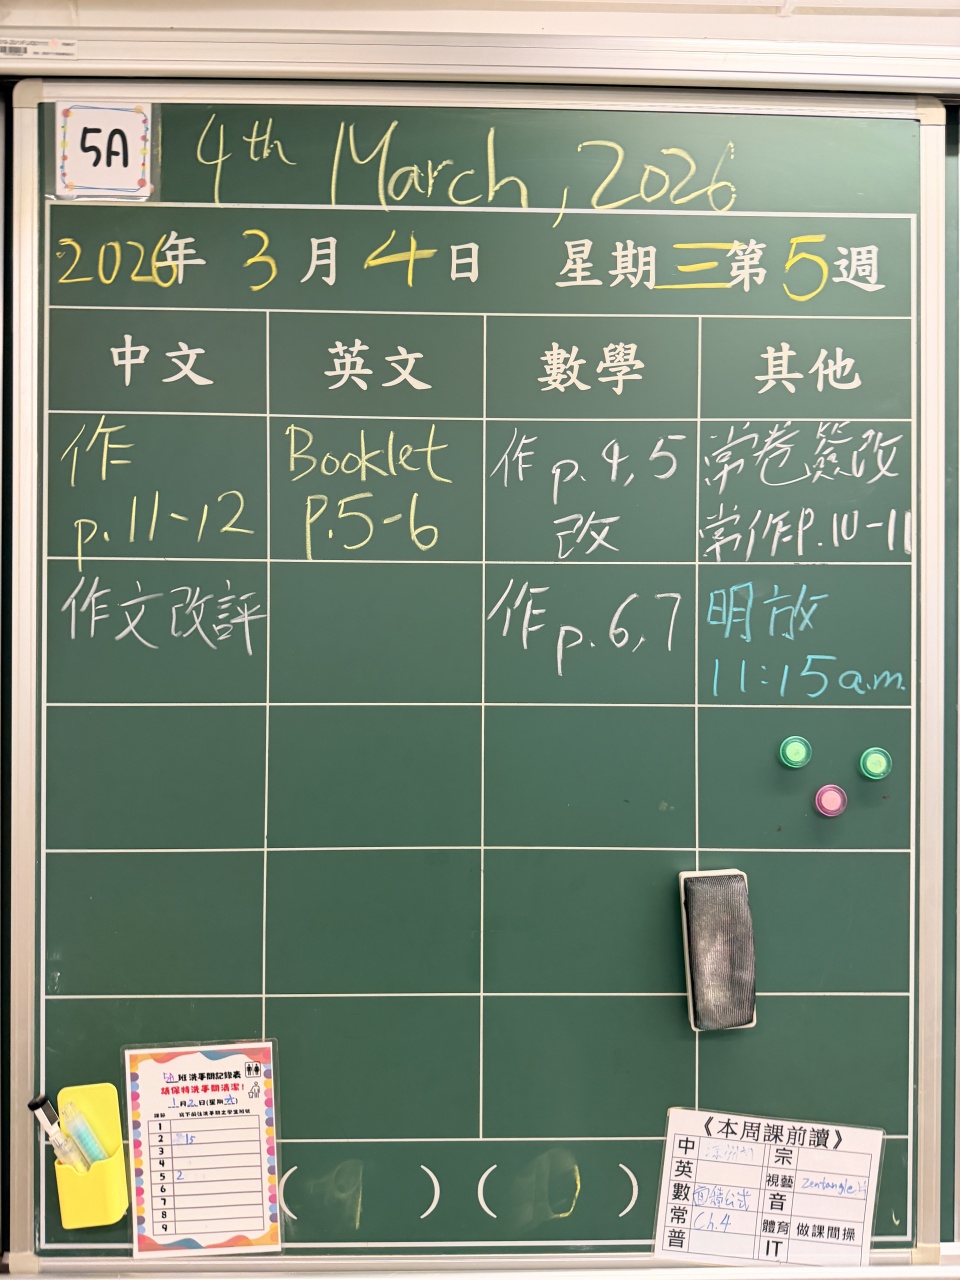 5A
4th March, 2026
2026年 3月4日 星期三 第5週
中文 英文 數學 其他
作 p.11-12
Booklet P.5-6
作 p.4,5 改
常卷簽改
常作P.10-11
作文改評
作 p.6,7
明放 11:15 a.m.
5A班洗手間記錄表
請保持洗手間清潔!
1
2 15
3
4
5 2
6
7
8
9
( ) ( )
《本周課前讀》
中
宗
英
視藝 Zentangle
數 面積公式
音
常 Ch.4
體育 做課間操
普
IT